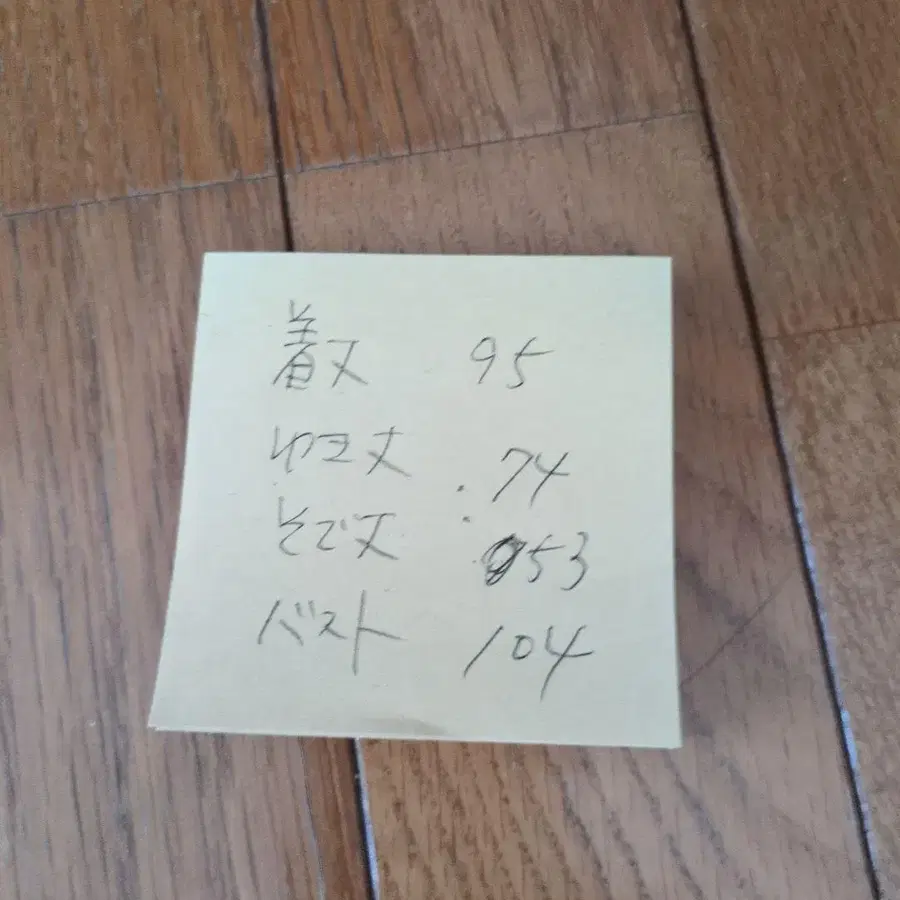 着丈 95
ゆき丈 74
そで丈 53
バスト 104